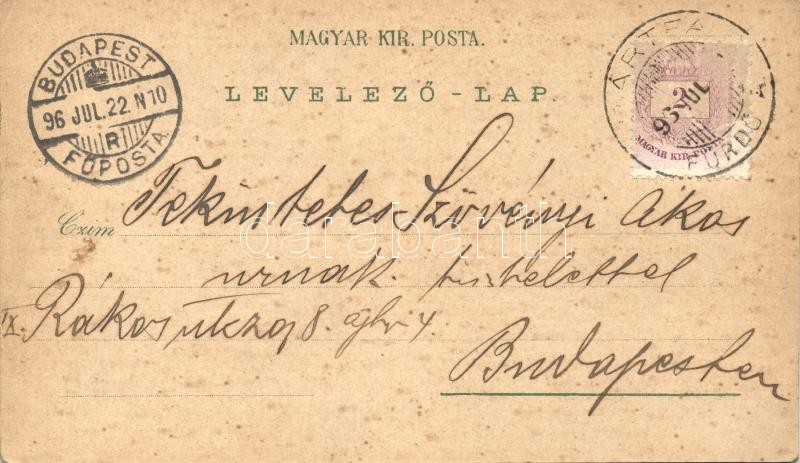 MAGYAR KIR. POSTA.
LEVELEZŐ-LAP.
BUDAPEST
96 JUL. 22. N 10
R
FŐPOSTA
BÁRTFA
96 JUL
FÜRDŐ
2
MAGYAR KIR. POSTA
Czim
Tekintetes Szövényi Ákos
urnak tisztelettel
IX. Rákos utcza 8. ajtó 4
Budapesten
darabanth